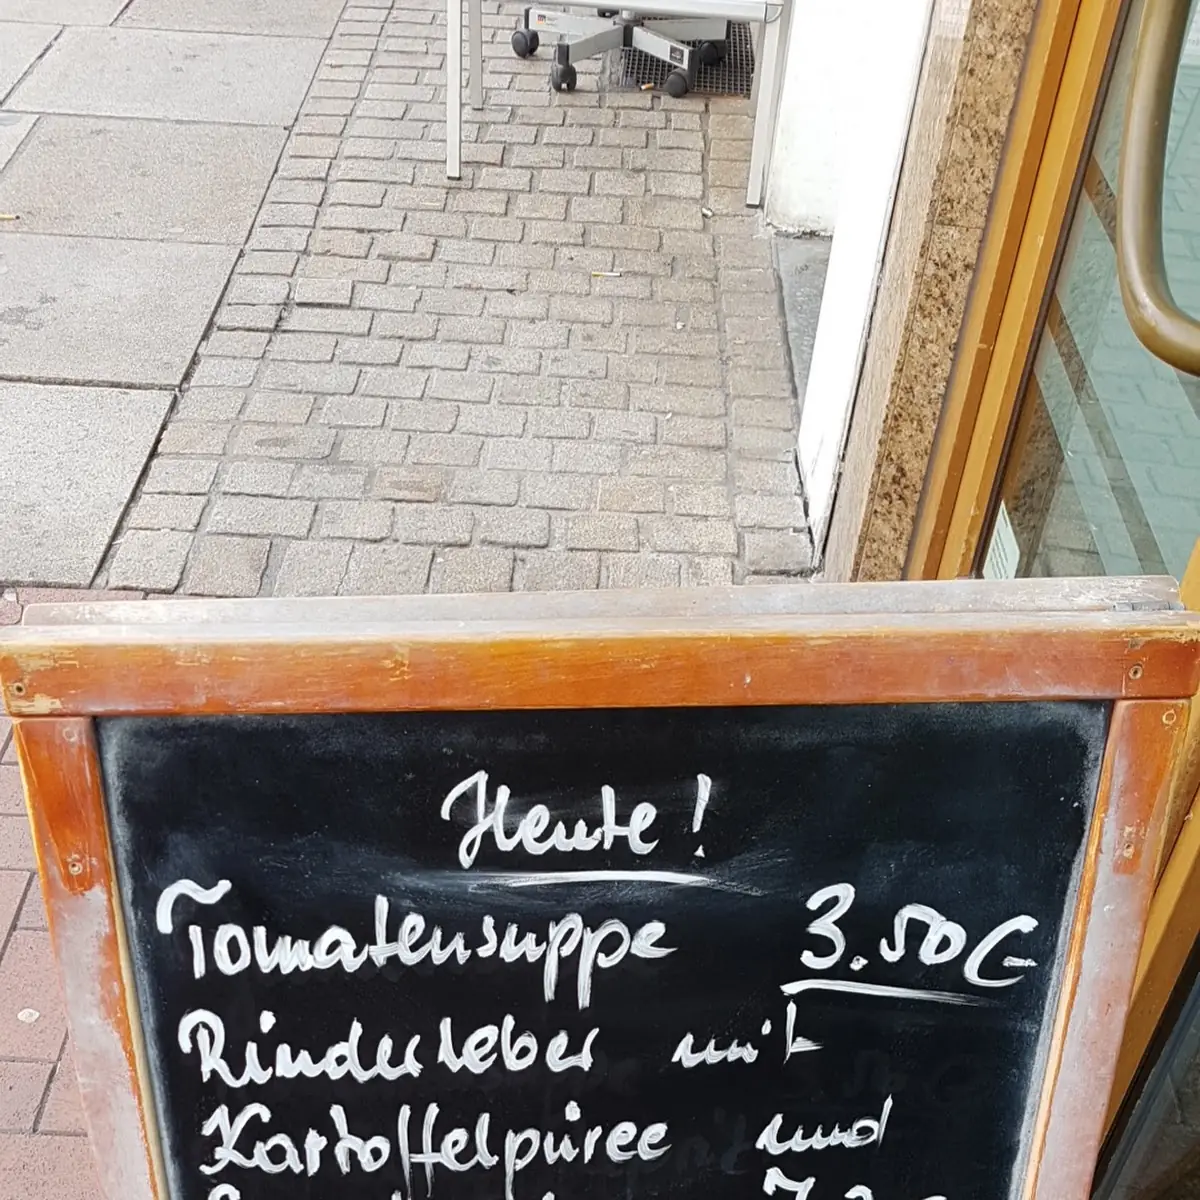 Heute!
Tomatensuppe 3.50€
Rinderleber mit
Kartoffelpüree und